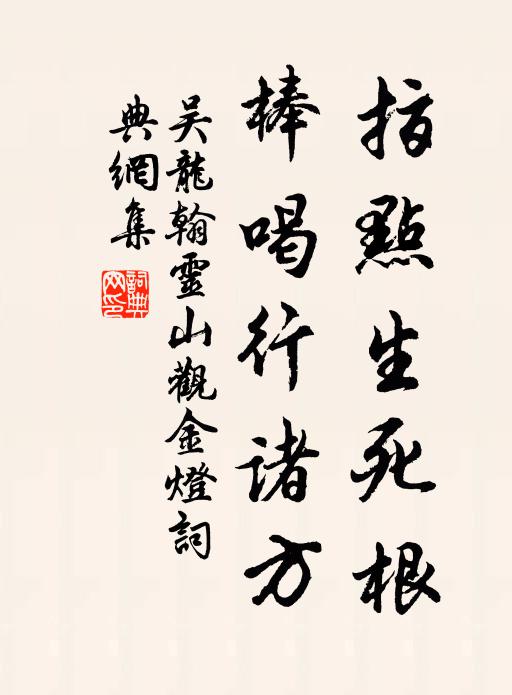 指點生死根
棒喝行诸方
吴龍翰靈山觀金燈詞
典網集
詞典網印